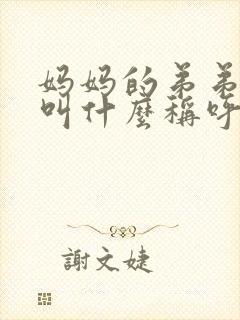 妈妈的弟弟
叫什麼稱呼
謝文婕